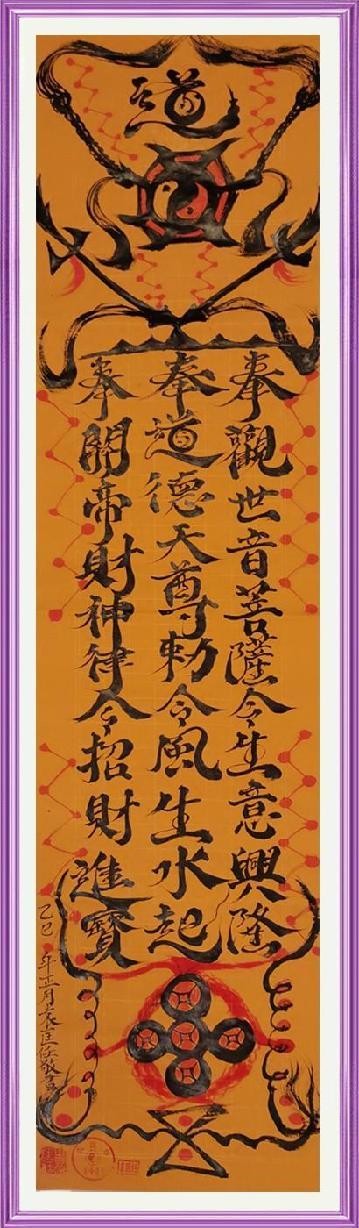 道
奉觀世音菩薩令生意興隆
奉道德天尊勅令風生水起
奉關帝財神律令招財進寶
乙巳年正月